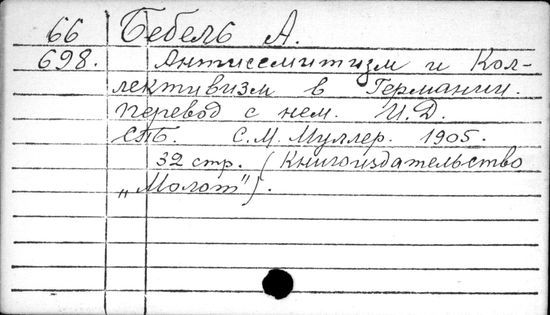 66 Бебель А.
698. Антисемитизм и Кол-
лективизм в Германии.
Перевод с нем. И.Д.
СПБ. С.М. Муллер. 1905.
32 стр. (Книгоиздательство
„Молот").